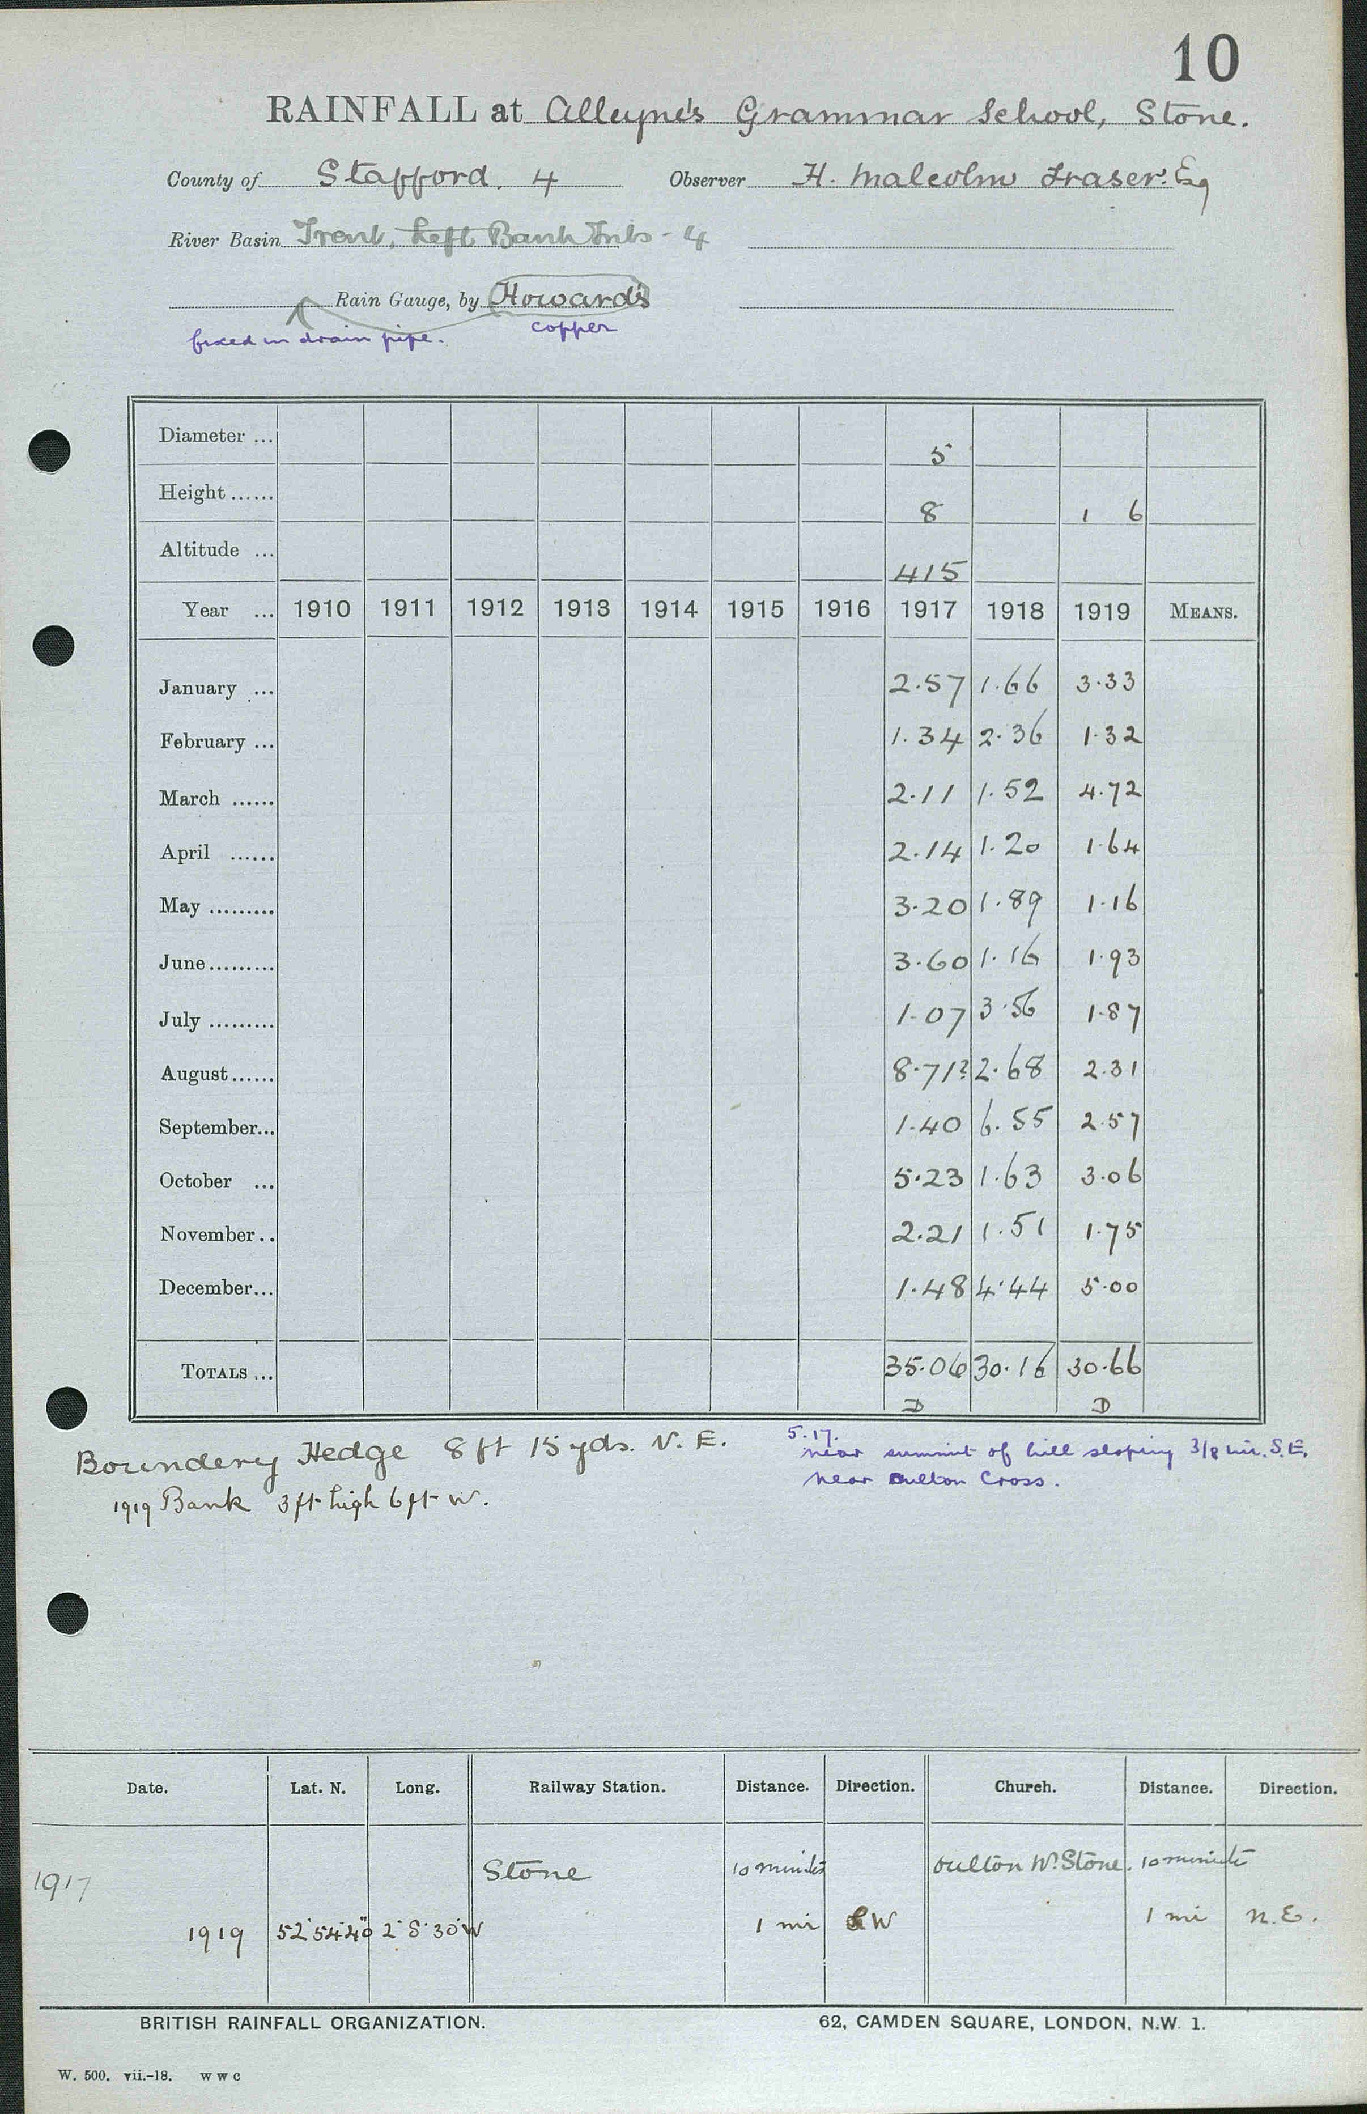 10
RAINFALL at Alleyne's Grammar School, Stone.
County of Stafford. 4 Observer H. Malcolm Fraser. Esq
River Basin Trent, Left Bank Tribs - 4
Rain Gauge, by Howards
fixed in drain pipe. copper
Diameter ... 5
Height ...... 8 1 6
Altitude ... 415
Year ... 1910 1911 1912 1913 1914 1915 1916 1917 1918 1919 MEANS.
January ... 2.57 1.66 3.33
February ... 1.34 2.36 1.32
March ...... 2.11 1.52 4.72
April ...... 2.14 1.20 1.64
May ......... 3.20 1.89 1.16
June......... 3.60 1.16 1.93
July ......... 1.07 3.56 1.87
August...... 8.71? 2.68 2.31
September... 1.40 6.55 2.57
October ... 5.23 1.63 3.06
November.. 2.21 1.51 1.75
December... 1.48 4.44 5.00
TOTALS ... 35.06 30.16 30.66
D D
Boundery Hedge 8 ft 15 yds. N. E. 5.17.
near summit of hill sloping 3/8 mi. S.E.
near Oulton Cross.
1919 Bank 3 ft high 6 ft W.
Date. Lat. N. Long. Railway Station. Distance. Direction. Church. Distance. Direction.
1917 Stone 10 minutes Oulton Nr. Stone. 10 minutes
1919 52° 54' 40" 2° 8' 30" W 1 mi SW 1 mi N.E.
BRITISH RAINFALL ORGANIZATION. 62, CAMDEN SQUARE, LONDON, N.W. 1.
W. 500. vii.-18. W W C